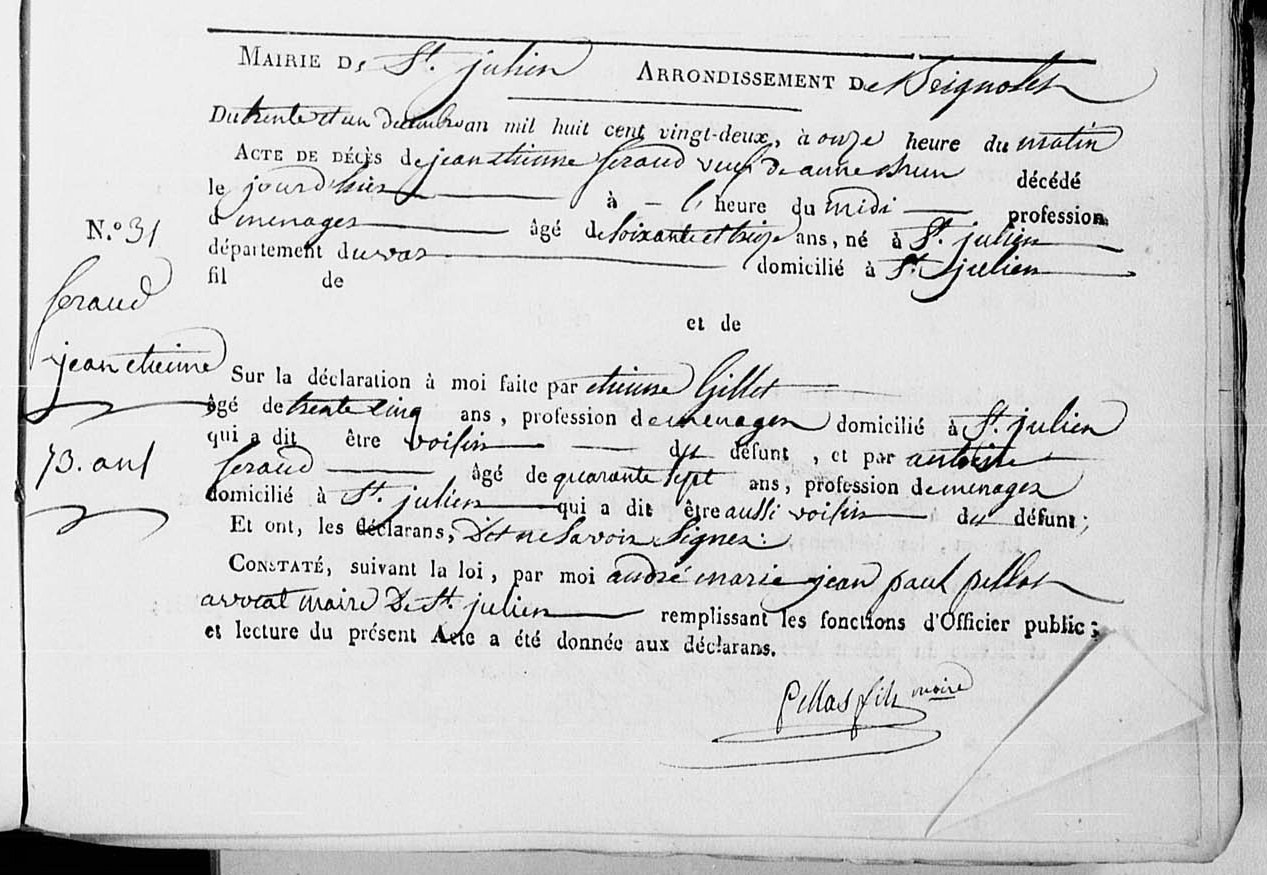 MAIRIE De St. julien ARRONDISSEMENT De Brignoles
Du trente et un Decembre an mil huit cent vingt-deux, à onze heure du matin
ACTE DE DÉCÈS de jean etienne feraud veuf de anne brun décédé
le jourd'hier à - l' heure du midi profession
d menager âgé de soixante et treize ans, né à St. julien
département du var domicilié à St. julien
fil de
et de
N.º 31
feraud
jean etienne
73. ans
Sur la déclaration à moi faite par etienne Gillet
âgé de trente cinq ans, profession de menager domicilié à St. julien
qui a dit être voisin du défunt, et par antoine
feraud âgé de quarante sept ans, profession de menager
domicilié à St. julien qui a dit être aussi voisin du défunt;
Et ont, les déclarans, Dit ne Savoir Signer:
CONSTATÉ, suivant la loi, par moi andré marie jean paul pellas
avocat maire De St. julien remplissant les fonctions d'Officier public;
et lecture du présent Acte a été donnée aux déclarans.
Pellas fils maire